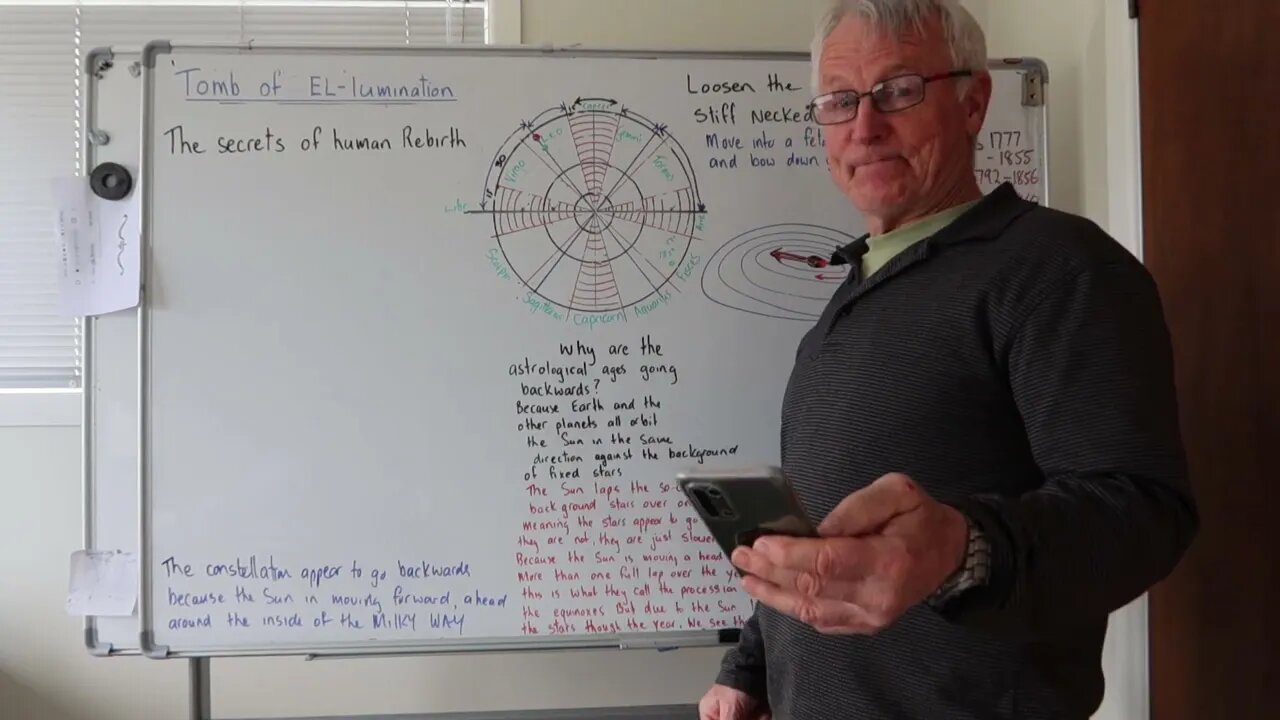 Tomb of EL-lumination
The secrets of human Rebirth
Loosen the
Stiff Necked
Move into a
and bow down
1777
- 1855
792-1856
Cancer
Leo
Gemini
Virgo
30
15
Scorpio
Sagittarius
Capricorn
Aquarius
Pisces
Why are the
astrological ages going
backwards?
Because Earth and the
other planets all orbit
the Sun in the same
direction against the background
of fixed stars
The Sun laps the so
back ground stars over
meaning the stars appear to go
they are not, they are just slower
Because the Sun is moving a head
More than one full lap over the
this is what they call the procession
the equinoxes But due to the Sun
the stars though the year, We see
The constellation appear to go backwards
because the Sun in moving forward, ahead
around the inside of the MILKY WAY